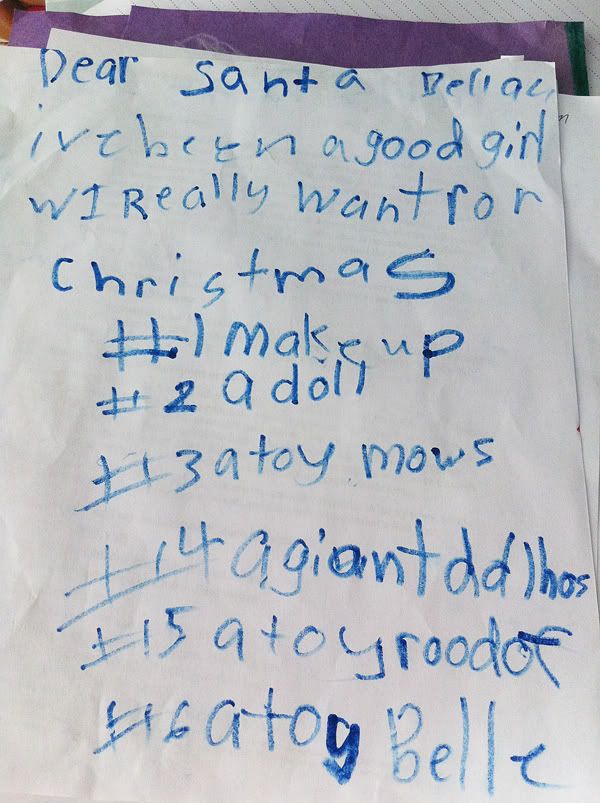 Dear Santa
ive been a good girl
W I Really want for
Christmas
#1 make up
#2 a doll
#3 a toy mows
#4 a giant ddlhos
#5 a toy roodof
#6 a toy Belle